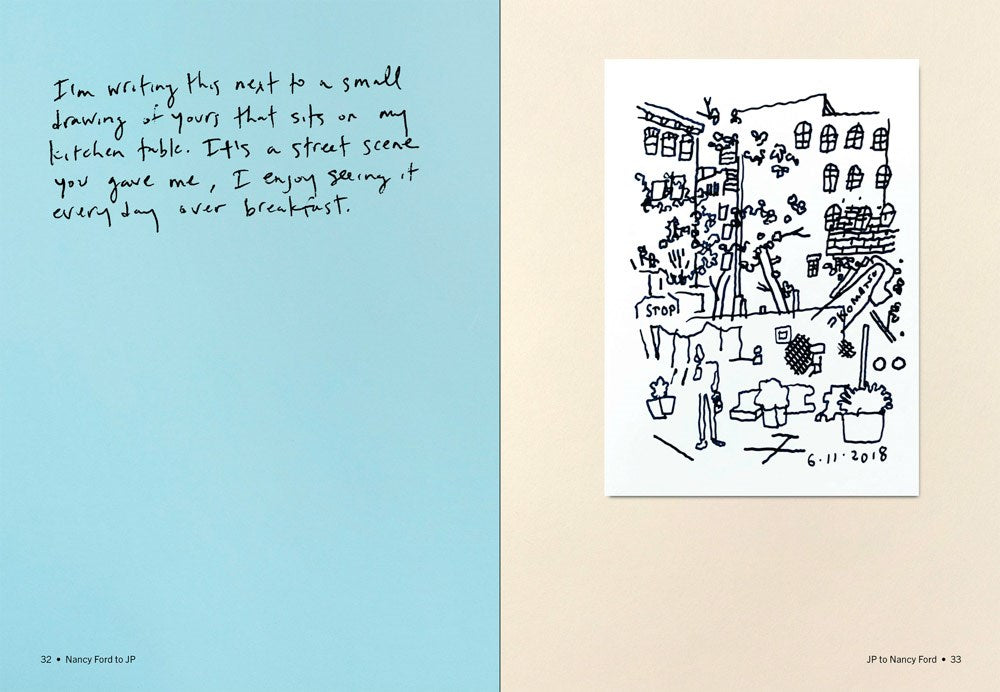 I'm writing this next to a small
drawing of yours that sits on my
kitchen table. It's a street scene
you gave me, I enjoy seeing it
every day over breakfast.
32 • Nancy Ford to JP
STOP!
KOMATSU
6·11·2018
JP to Nancy Ford • 33